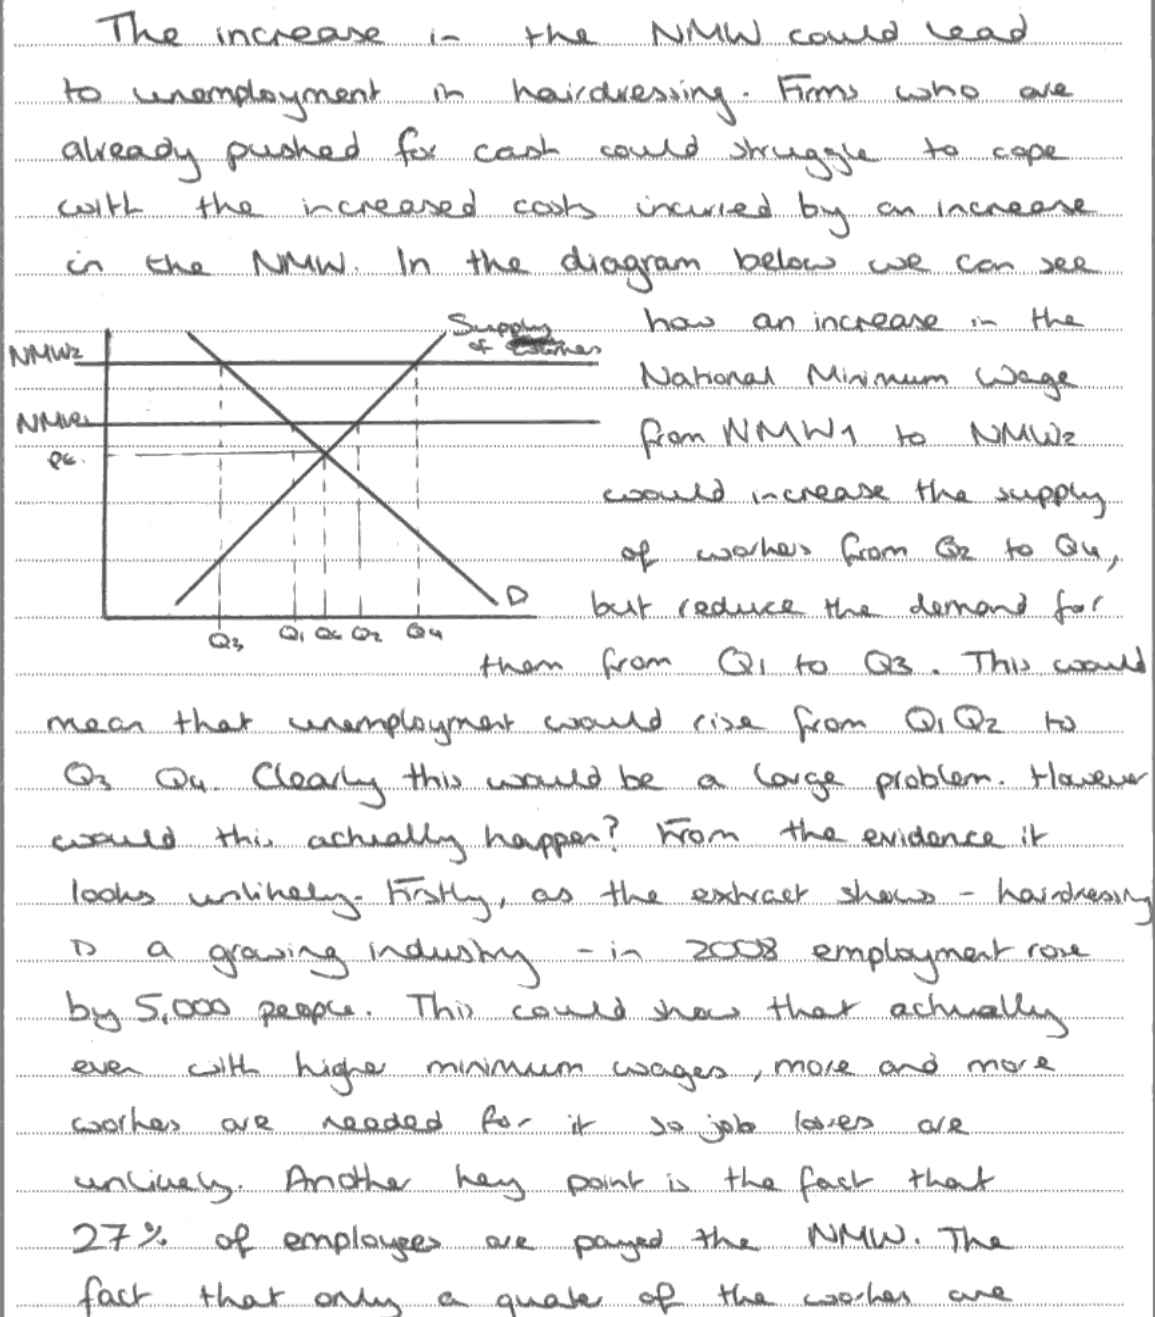 The increase in the NMW could lead
to unemployment in hairdressing. Firms who are
already pushed for cash could struggle to cope
with the increased costs incurred by an increase
in the NMW. In the diagram below we can see
how an increase in the
National Minimum Wage
from NMW1 to NMW2
would increase the supply
of workers from Q2 to Q4,
but reduce the demand for
Supply
of
NMW2
NMW1
D
Q3 Q1 Q2 Q4
them from Q1 to Q3. This would
mean that unemployment would rise from Q1Q2 to
Q3 Q4. Clearly this would be a large problem. However
would this actually happen? From the evidence it
looks unlikely. Firstly, as the extract shows - hairdressing
is a growing industry - in 2008 employment rose
by 5,000 people. This could show that actually
even with higher minimum wages, more and more
workers are needed for it so job losses are
unlikely. Another key point is the fact that
27% of employees are payed the NMW. The
fact that only a quater of the workers are